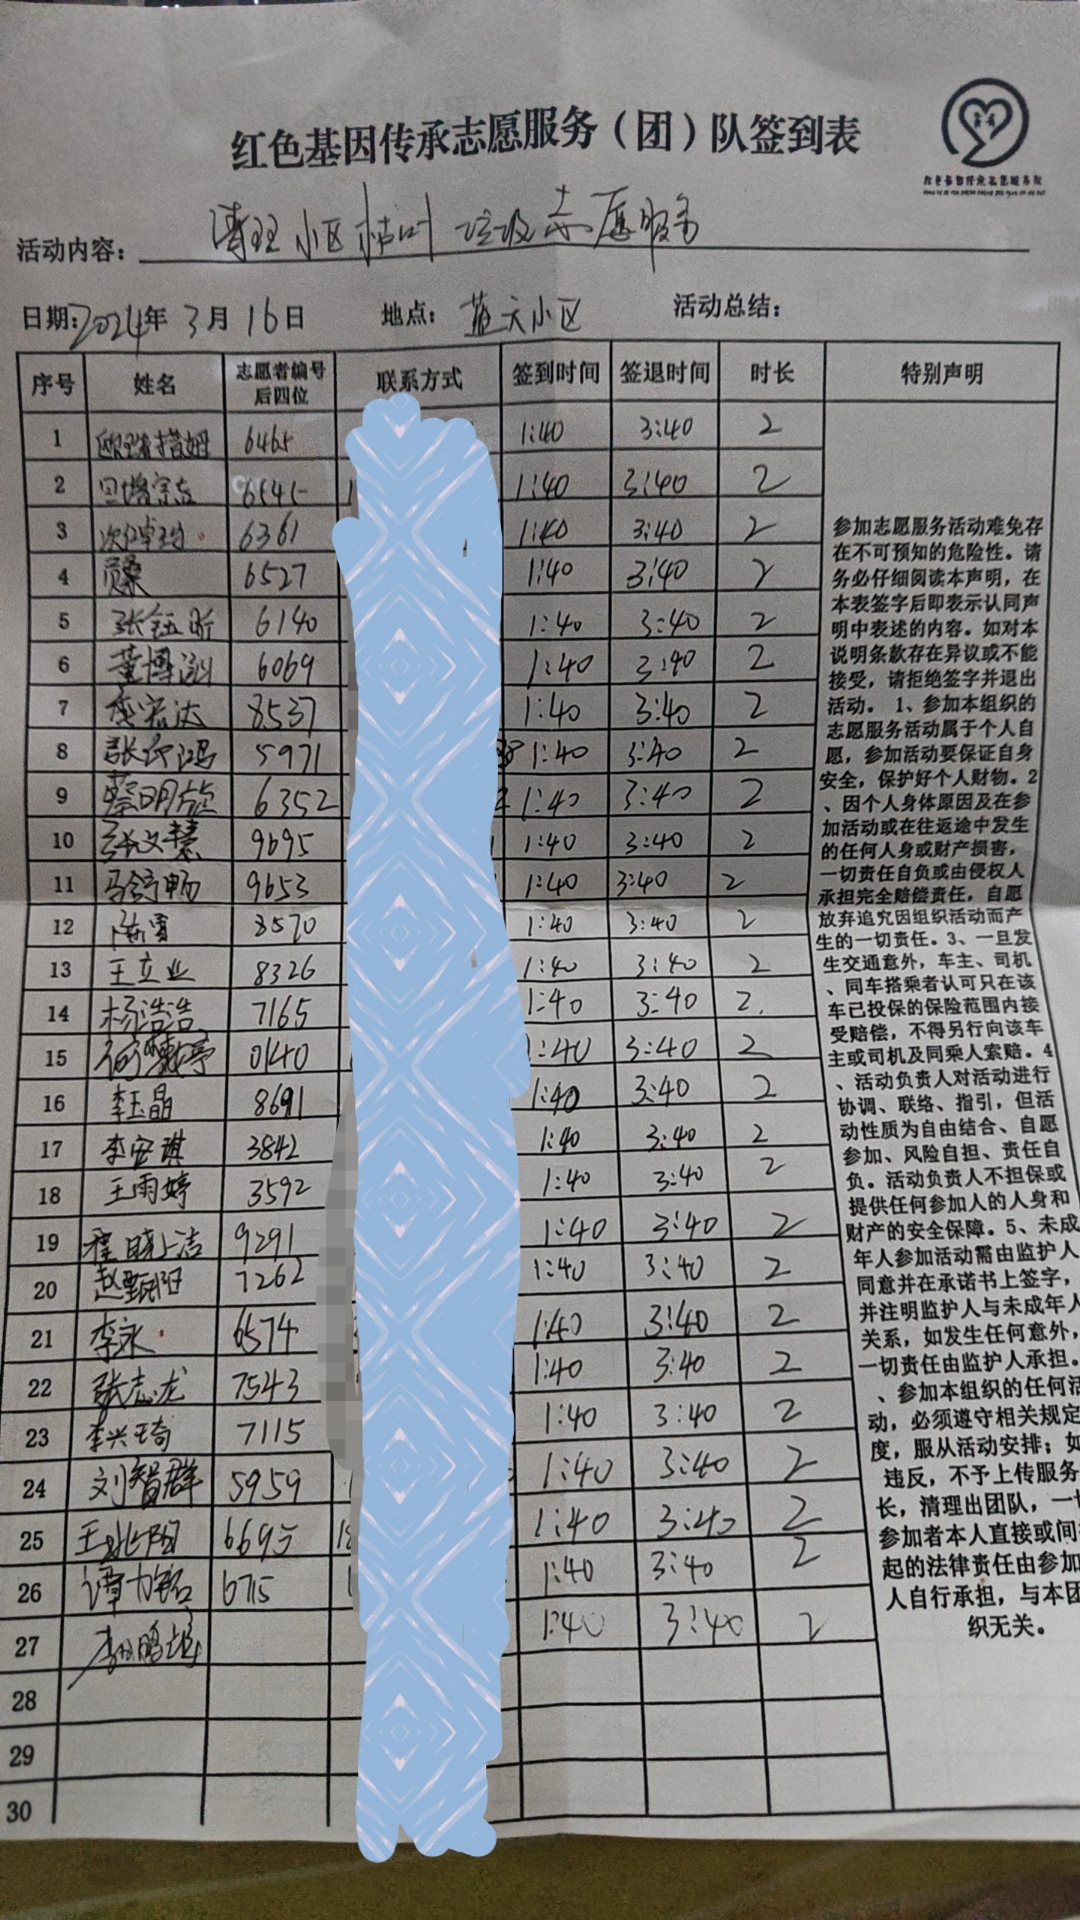 红色基因传承志愿服务（团）队签到表
活动内容：清理小区枯叶垃圾志愿服务
日期：2024年3月16日 地点：蓝天小区 活动总结：
序号 姓名 志愿者编号后四位 联系方式 签到时间 签退时间 时长 特别声明
1 欧珠措姆 6465 1:40 3:40 2
2 6545 1:40 3:40 2
3 6361 1:40 3:40 2
4 6527 1:40 3:40 2
5 张钰昕 6140 1:40 3:40 2
6 董博 6069 1:40 3:40 2
7 李宏达 8537 1:40 3:40 2
8 5971 1:40 3:40 2
9 蔡明旋 6352 1:40 3:40 2
10 张文慧 9695 1:40 3:40 2
11 马舒畅 9653 1:40 3:40 2
12 陈雷 8570 1:40 3:40 2
13 王立业 8326 1:40 3:40 2
14 杨浩浩 7165 1:40 3:40 2
15 0140 1:40 3:40 2
16 李玉晶 8691 1:40 3:40 2
17 李宏琪 3842 1:40 3:40 2
18 王雨婷 3592 1:40 3:40 2
19 程晓洁 9291 1:40 3:40 2
20 赵甄阳 7262 1:40 3:40 2
21 李永 6574 1:40 3:40 2
22 张志龙 7543 1:40 3:40 2
23 李兴琦 7115 1:40 3:40 2
24 刘智群 5959 1:40 3:40 2
25 王兆阳 6695 1:40 3:40 2
26 谭力铭 6715 1:40 3:40 2
27 1:40 3:40 2
28
29
30
参加志愿服务活动难免存
在不可预知的危险性。请
务必仔细阅读本声明，在
本表签字后即表示认同声
明中表述的内容。如对本
说明条款存在异议或不能
接受，请拒绝签字并退出
活动。 1、参加本组织的
志愿服务活动属于个人自
愿，参加活动要保证自身
安全，保护好个人财物。2
、因个人身体原因及在参
加活动或在往返途中发生
的任何人身或财产损害，
一切责任自负或由侵权人
承担完全赔偿责任，自愿
放弃追究因组织活动而产
生的一切责任。3、一旦发
生交通意外，车主、司机
、同车搭乘者认可只在该
车已投保的保险范围内接
受赔偿，不得另行向该车
主或司机及同乘人索赔。4
、活动负责人对活动进行
协调、联络、指引，但活
动性质为自由结合、自愿
参加、风险自担、责任自
负。活动负责人不担保或
提供任何参加人的人身和
财产的安全保障。5、未成
年人参加活动需由监护人
同意并在承诺书上签字，
并注明监护人与未成年人
关系，如发生任何意外，
一切责任由监护人承担。
、参加本组织的任何活
动，必须遵守相关规定
度，服从活动安排；如
违反，不予上传服务
长，清理出团队，一切
参加者本人直接或间接
起的法律责任由参加
人自行承担，与本团
织无关。